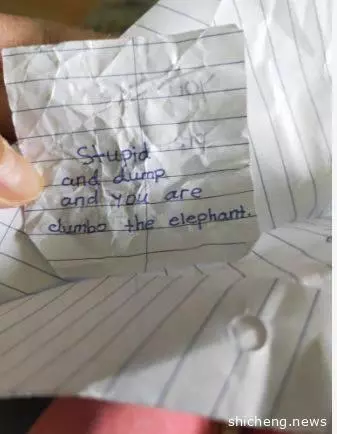 Stupid
and dump
and you are
dumbo the elephant.
shicheng.news